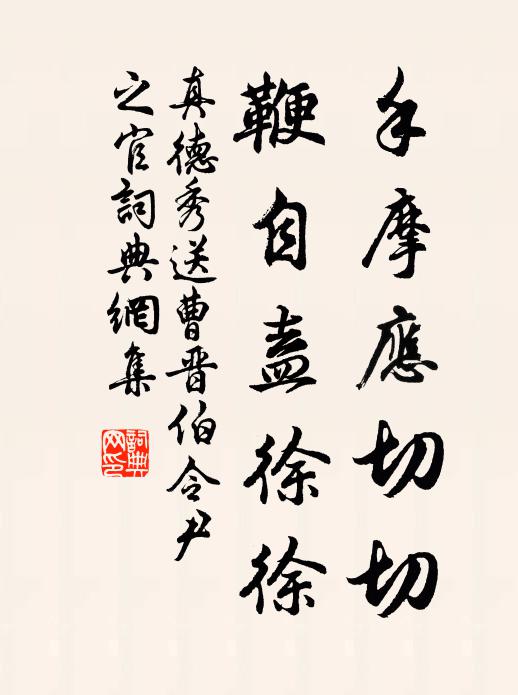 手摩應切切
鞭自盍徐徐
真德秀送曹晋伯令尹
之官詞典網集
詞典
网印